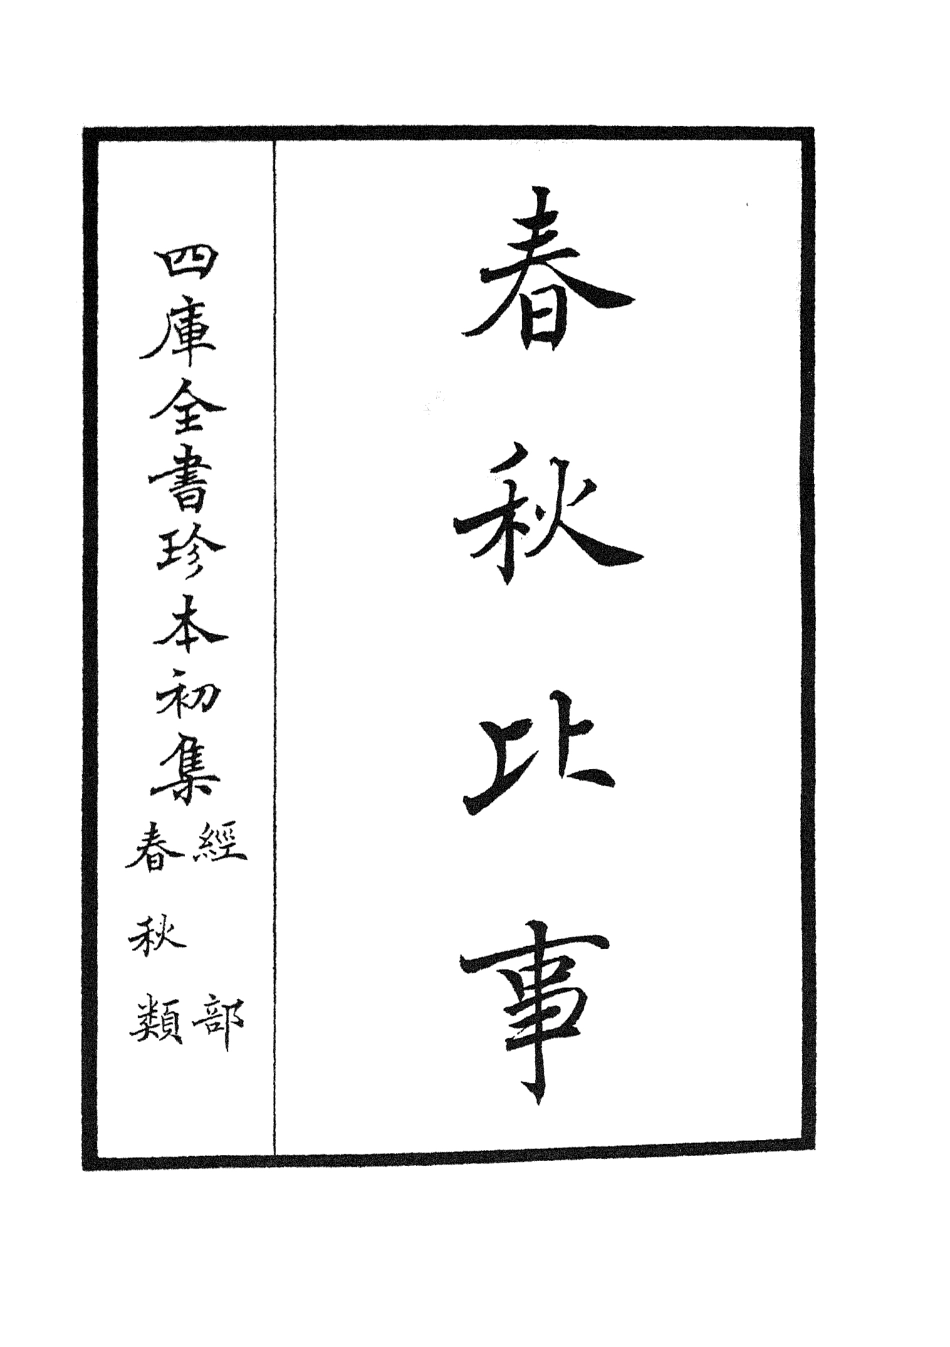 春秋比事
四庫全書珍本初集
經部
春秋類